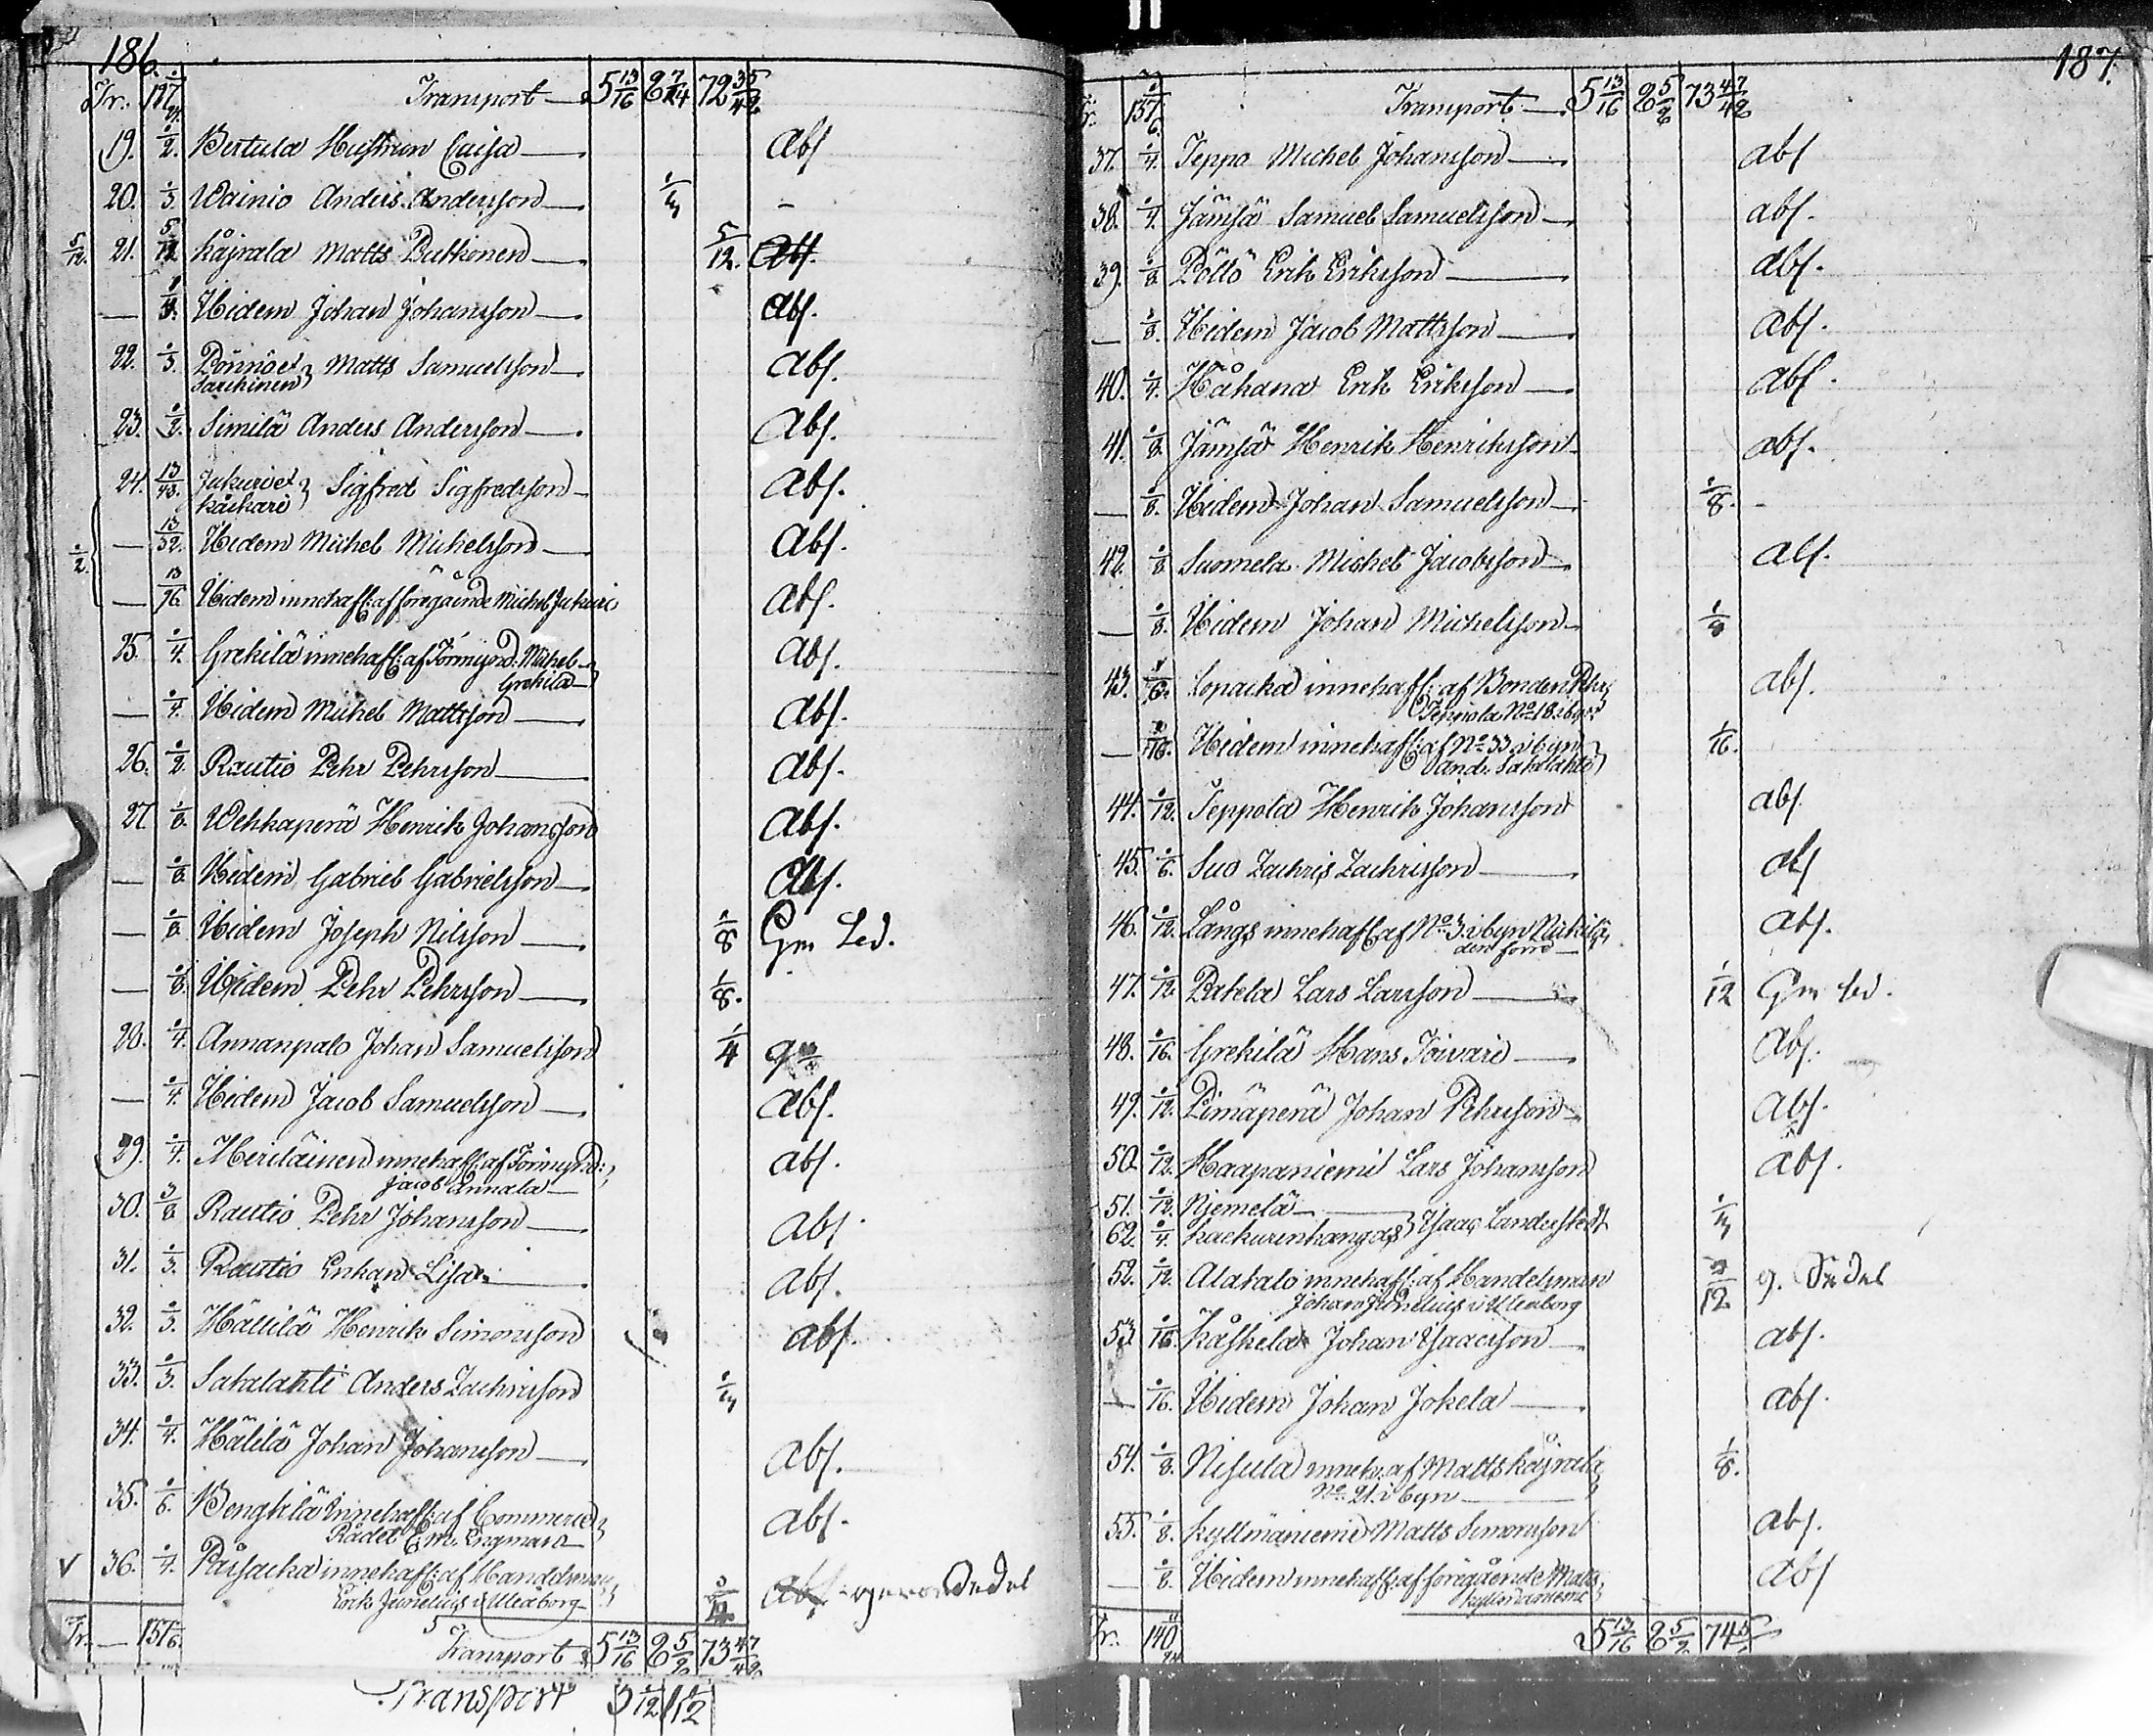 186.
Tr. Transport 5 13/16
19. 1/2. Bertula Hustrun Caisa abs
20. 1/3 Wainio Anders Andersson 1/3 -
5/12. 21. 5/12 Kåjrala Matts Pulkkonen 5/12. abs.
— Ibidem Johan Johansson abs.
22. 1/3. Matts Samuelsson abs.
23. 1/2. Similä Anders Andersson abs.
24. 13/48. Jukuri et Sigfred Sigfredsson abs.
Kåckari
1/2. — 13/32. Ibidem Michel Michelsson abs.
— 13/96. Ibidem innehaft: af föregående Michel Jukuri abs.
25. 1/4. Grekilä innehaft: af Förmynd: Michel abs.
Grekilä
— 1/4. Ibidem Michel Mattsson abs.
26. 1/2. Rautio Pehr Pehrsson abs.
27. 1/8. Wehkaperä Henrik Johansson abs.
— 1/8. Ibidem Gabriel Gabrielsson abs.
— 1/8. Ibidem Joseph Nilsson 1/8 Gm Sed.
— 1/8. Ibidem Pehr Pehrsson 1/8.
28. 1/4. Annanpalo Johan Samuelsson 1/4 gm
— 1/4. Ibidem Jacob Samuelsson abs.
29. 1/4. Meriläinen innehaft: af Förmynd: abs.
Jacob Annala
30. 3/8 Rautio Pehr Johansson abs.
31. 1/3. Rautio Enkan Lisa abs.
32. 1/3. Hällilä Henrik Simonsson abs.
33. 1/3. Satalahti Anders Zachrisson 1/3
34. 1/4. Hälilä Johan Johansson abs.
35. 1/6. Bengkilä innehaft: af Commercie abs.
Rådet Em. Engman
V 36. 1/4. Passacka innehaft: af Handelsman abs
Erik Junelius i Uleåborg
Tr. — 137 5/6. Transport 5 13/16
Transport
187.
Tr. 137 5/6. Transport 5 13/16
37. 1/4. Teppo Michel Johansson abs
38. 1/4. Jämsä Samuel Samuelsson abs.
39. 1/8 Pöllö Erik Eriksson abs.
— 1/8. Ibidem Jacob Mattsson abs.
40. 1/4. Håkana Erik Eriksson abs.
41. 1/8. Jämsä Henrik Henriksson abs.
— 1/8. Ibidem Johan Samuelsson 1/8. -
42. 1/8 Suomela Michel Jacobsson abs.
— 1/8. Ibidem Johan Michelsson 1/8
43. Lopacka innehaft: af Bonden Pehr abs.
Teppola No 18 i byn
— Ibidem innehaft: af No 33 i byn 1/16.
And. Satalahti
44. 1/12. Teppola Henrik Johansson abs.
45. 1/6. Suo Zachris Zachrisson abs
46. 1/12. Långs innehaft af No 3. i byn abs.
47. 1/12. Pakela Lars Larsson 1/12 Gm sed.
48. 1/16. Grekilä Hans Toivari abs.
49. 1/12. Pimäperä Johan Pehrsson abs.
50. 1/12. Haapaniemi Lars Johansson abs.
51. 1/12. Njemelä
62. 1/4. Kackurinkangas Isaac Landerstedt 1/3
52. 1/12. Alatalo innehaft: af Handelsman g. Sedel
Johan Junelius i Uleåborg
53. 1/16. Kåskela Johan Isaacsson abs.
— 1/16. Ibidem Johan Jokela abs.
54. 1/8. Nisula inneh. af Matts Kåjrala 1/8.
No 21. i byn
55. 1/8. Kyllmäniemi Matts Simonsson abs.
— 1/8. Ibidem innehaft: af föregående Matts abs
Kyllmäniemi
Tr. 5 13/16